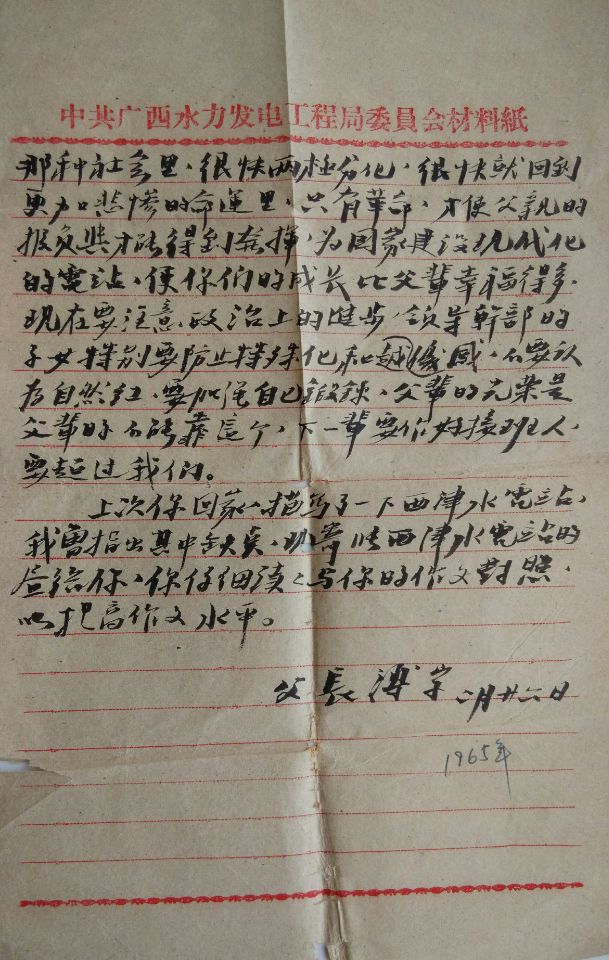 中共广西水力发电工程局委員会材料紙
那种社会里，很快两极分化，很快就回到
更加悲惨的命运里，只有革命，才使父亲的
报负与才能得到发挥，为国家建设现代化
的電站，使你们的成长比父輩幸福得多，
现在要注意政治上的進步，领导幹部的
子女特别要防止特殊化和越感，不要认
为自然红，要加强自己锻鍊，父輩的光荣是
父輩的不能靠這个，下一輩要作好接班人，
要超过我们。
上次你回家描写了一下西津水電站，
我曾指出其中缺点，现寄西津水電站的
信给你，你仔细读之与你的作文對照，
以提高作文水平。
父 長 溥 字 二月廿六日
1965年